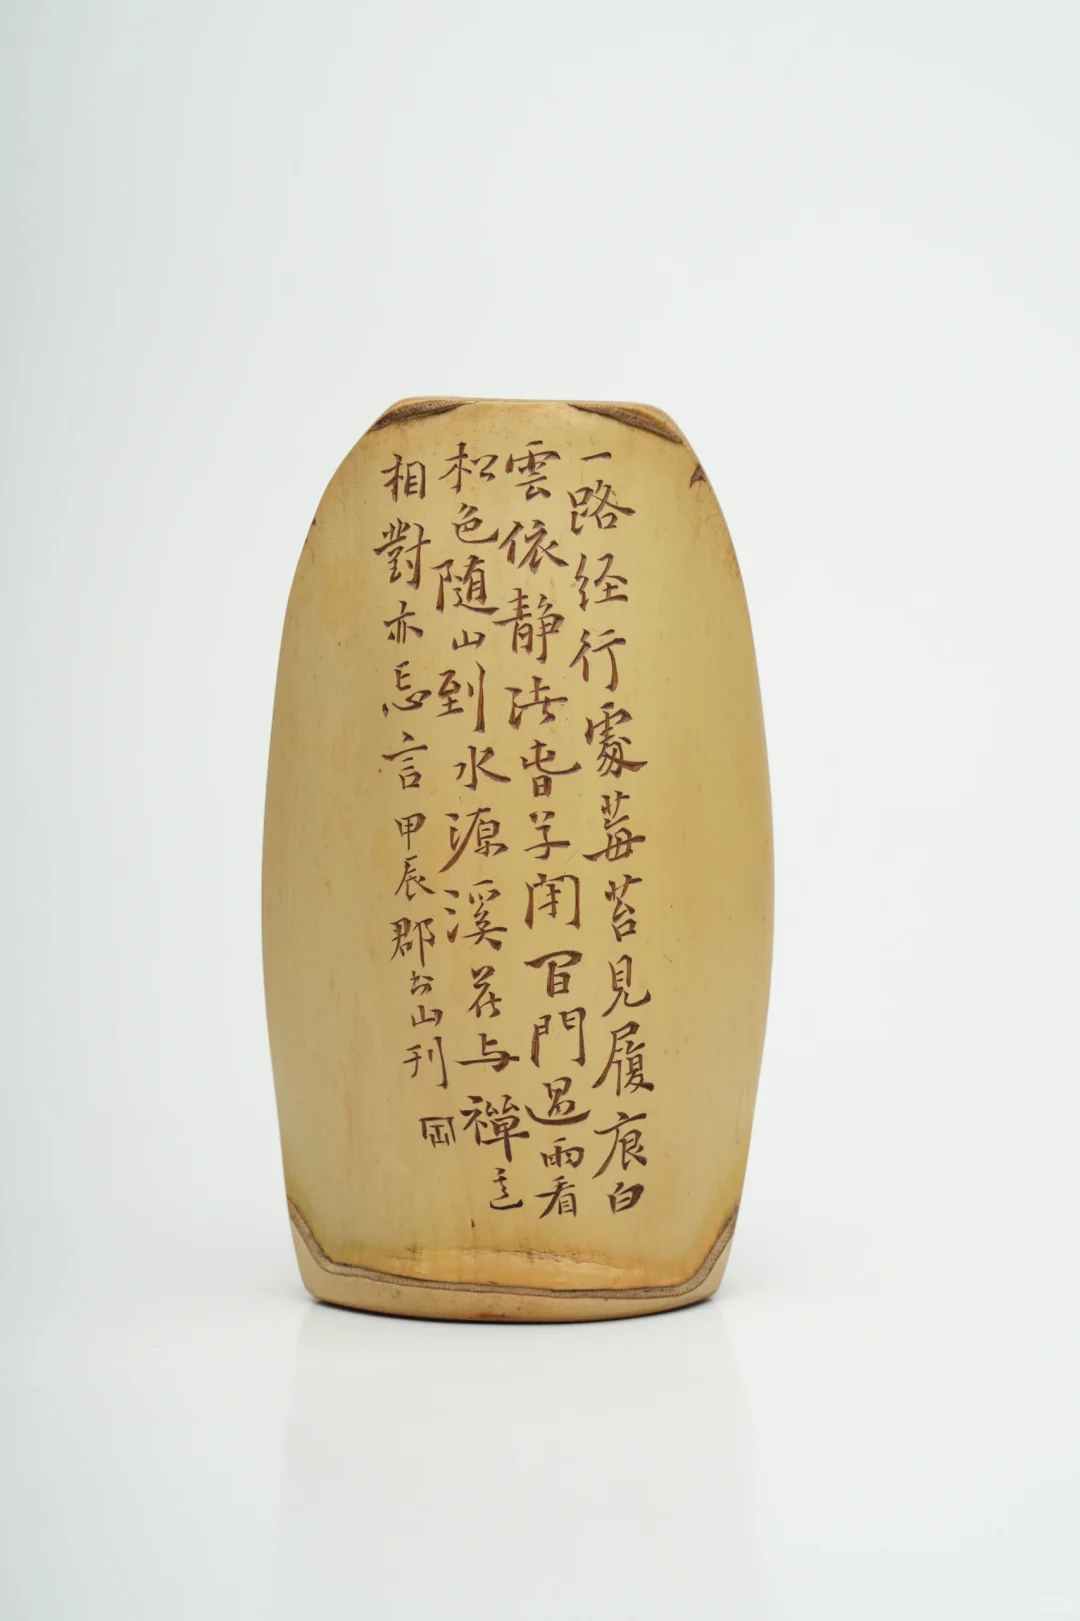 一路经行處莓苔見履痕白
雲依静渚旾草閉閒門過雨看
松色随山到水源溪花与禪意
相對亦忘言甲辰郡山刊